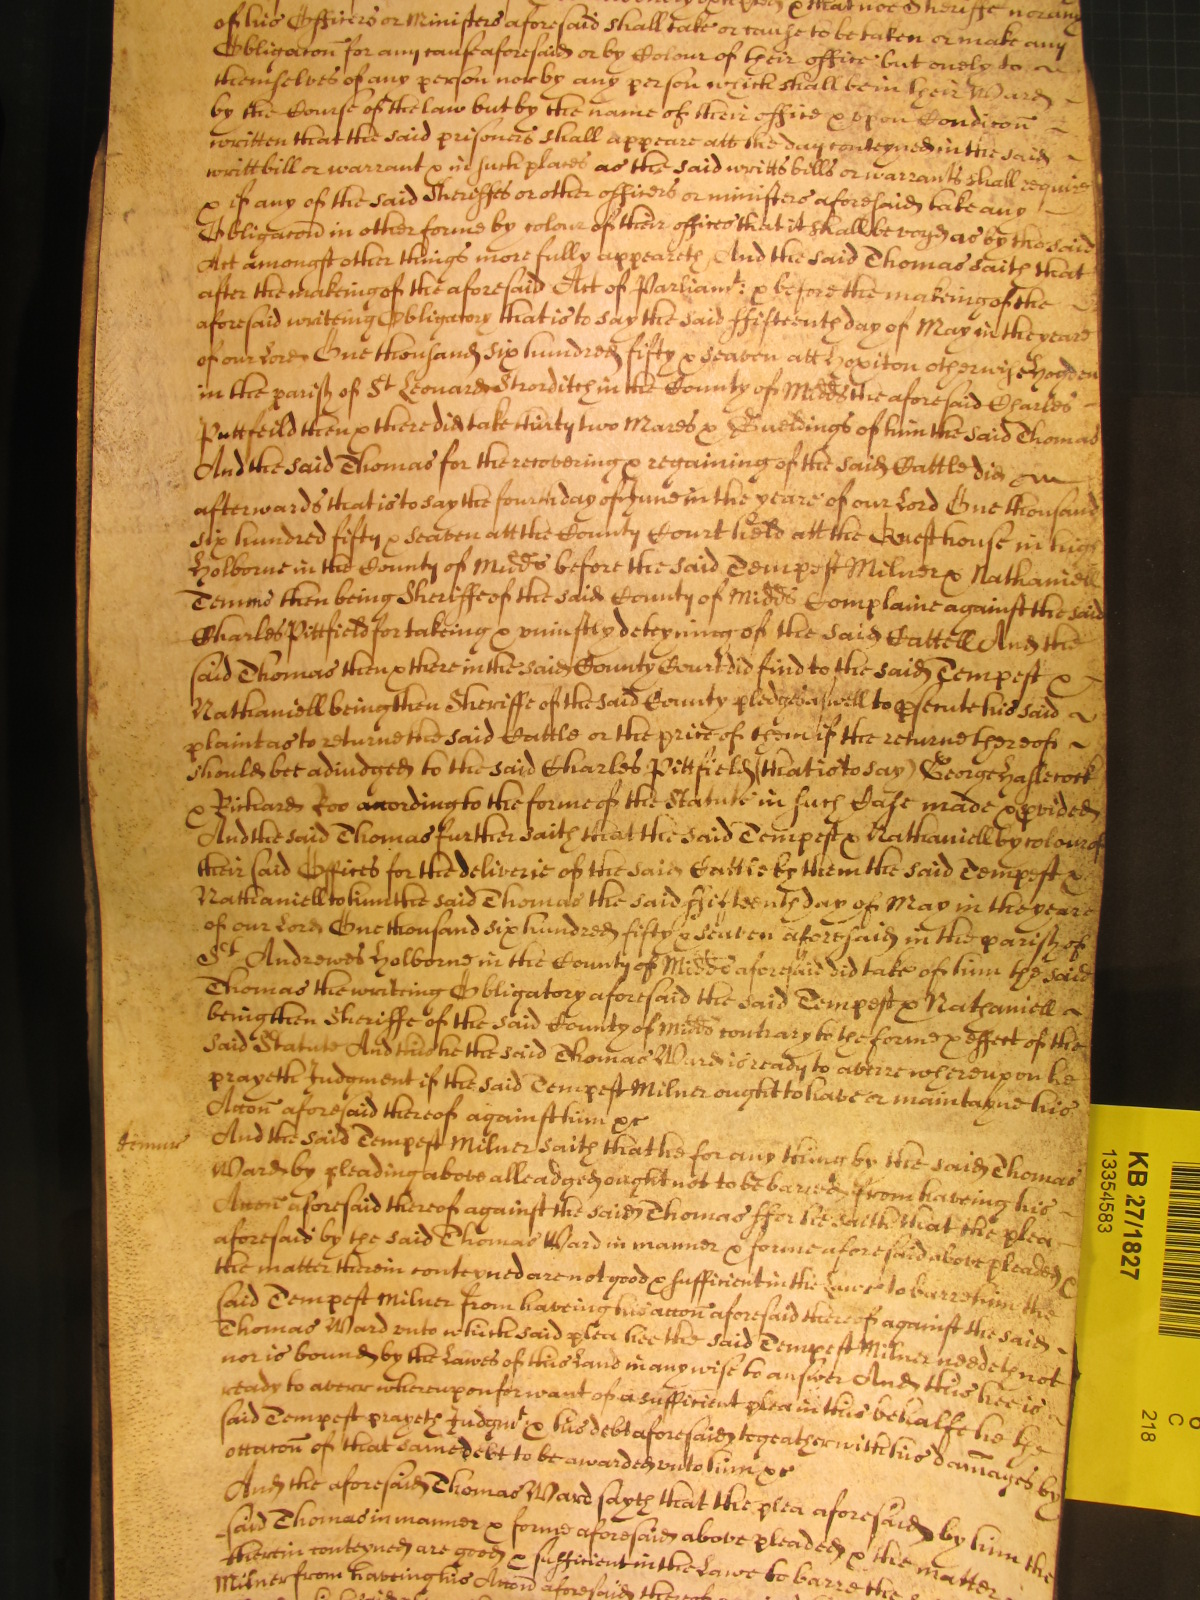 of his Officers or Ministers aforesaid shall take or cause to be taken or make any
Obligacon for any cause aforesaid or by Colour of their office but onely to
themselves of any person nor by any person which shall be in their Ward
by the Course of the law but by the name of their office & upon Condicon
written that the said prisoners shall appeare att the day conteyned in the said
writt bill or warrant & in such places as the said writts bills or warrants shall require
& if any of the said Sheriffes or other officers or ministers aforesaid take any
Obligacon in other forme by colour of their offices that it shall be voyd as by the said
Act amongst other things more fully appeareth And the said Thomas saith that
after the makeing of the aforesaid Act of Parliamt: & before the makeing of the
aforesaid writeing Obligatory that is to say the said ffifteenth day of May in the yeare
of our Lord One thousand six hundred fifty & seaven att Hoxton otherwise Hogden
in the parish of St Leonard Shorditch in the County of Midds the aforesaid Charles
Pittfeild then & there did take thirty two Mares & Gueldings of him the said Thomas
And the said Thomas for the recovering & regaining of the said Cattle did
afterwards that is to say the fourth day of June in the yeare of our Lord One thousand
six hundred fifty & seaven att the County Court held att the Quest house in high
Holborne in the County of Midds before the said Tempest Milner & Nathaniell
Temms then being Sheriffe of the said County of Midds Complaine against the said
Charles Pittfield for takeing & uniustly deteyning of the said Cattell And the
said Thomas then & there in the said County Court did find to the said Tempest &
Nathaniell being then Sheriffe of the said County pledges aswell to psecute his said
plaint as to returne the said Cattle or the price of them if the returne thereof
should bee adiudged to the said Charles Pittfield (that is to say) George Haslecock
& Richard Roo according to the forme of the Statute in such Case made & pvided
And the said Thomas further saith that the said Tempest & Nathaniell by colour of
their said Offices for the deliverie of the said Cattle by them the said Tempest &
Nathaniell to him the said Thomas the said ffifteenth day of May in the yeare
of our Lord One thousand six hundred fifty & seaven aforesaid in the parish of
St Andrewes Holborne in the County of Midds aforesaid did take of him the said
Thomas the writeing Obligatory aforesaid the said Tempest & Nathaniell
being then Sheriffe of the said County of Midds contrary to the forme & effect of the
said Statute And this he the said Thomas Ward is ready to averre whereupon he
prayeth Judgment if the said Tempest Milner ought to have or maintayne his
Accon aforesaid thereof against him &c
And the said Tempest Milner saith that he for any thing by the said Thomas
Ward by pleading above alleadged ought not to be barred from haveing his
Accon aforesaid thereof against the said Thomas ffor he saith that the plea
aforesaid by the said Thomas Ward in manner & forme aforesaid above pleaded &
the matter therein conteyned are not good & sufficient in the Lawe to barre him the
said Tempest Milner from haveing his accon aforesaid thereof against the said
Thomas Ward unto which said plea hee the said Tempest Milner needeth not
nor is bound by the Lawes of this Land in any wise to answer And this hee is
ready to averr whereupon for want of a sufficient plea in this behalfe he the
said Tempest prayeth Judgmt & his debt aforesaid togeather with his damages by
occacon of that same debt to be awarded unto him &c
And the aforesaid Thomas Ward sayth that the plea aforesaid by him the
said Thomas in manner & forme aforesaid above pleaded & the matter
therein conteyned are good & sufficient in the Lawe to barre the
Milner from haveing his Accon aforesaid thereof
KB 27/1827
13354583
C
218